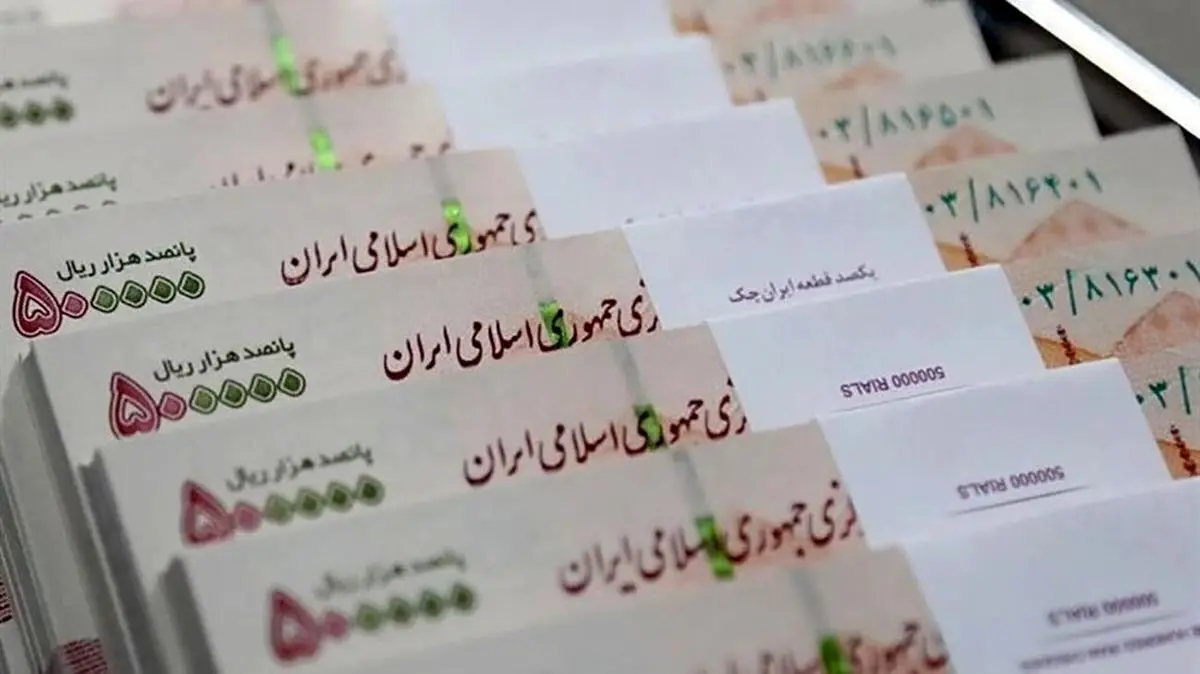 جمهوری اسلامی ایران
۰۳/۸۱۶۶۰۱
پانصد هزار
۰۳/۸۱۶۵۰۱
پانصد هزار ریال
۵۰۰۰۰۰
جمهوری اسلامی ایران
۰۳/۸۱۶۴۰۱
یکصد قطعه ایران چک
پانصد هزار ریال
۵۰۰۰۰۰
جمهوری اسلامی ایران
۰۳/۸۱۶۳۰۱
500000 RIALS
پانصد هزار ریال
۵۰۰۰۰۰
جمهوری اسلامی ایران
۰۳/
500000 RIALS
پانصد هزار ریال
۵۰۰۰۰۰
جمهوری اسلامی ایران
500000 RIALS
جمهوری اسلامی